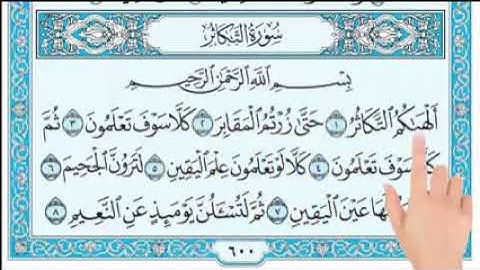 سُورَةُ التَّكَاثُرِ
بِسْمِ ٱللَّهِ ٱلرَّحْمَٰنِ ٱلرَّحِيمِ
أَلْهَىٰكُمُ ٱلتَّكَاثُرُ ١ حَتَّىٰ زُرْتُمُ ٱلْمَقَابِرَ ٢ كَلَّا سَوْفَ تَعْلَمُونَ ٣ ثُمَّ
سَوْفَ تَعْلَمُونَ ٤ كَلَّا لَوْ تَعْلَمُونَ عِلْمَ ٱلْيَقِينِ ٥ لَتَرَوُنَّ ٱلْجَحِيمَ ٦
عَيْنَ ٱلْيَقِينِ ٧ ثُمَّ لَتُسْـَٔلُنَّ يَوْمَئِذٍ عَنِ ٱلنَّعِيمِ ٨
٦٠٠